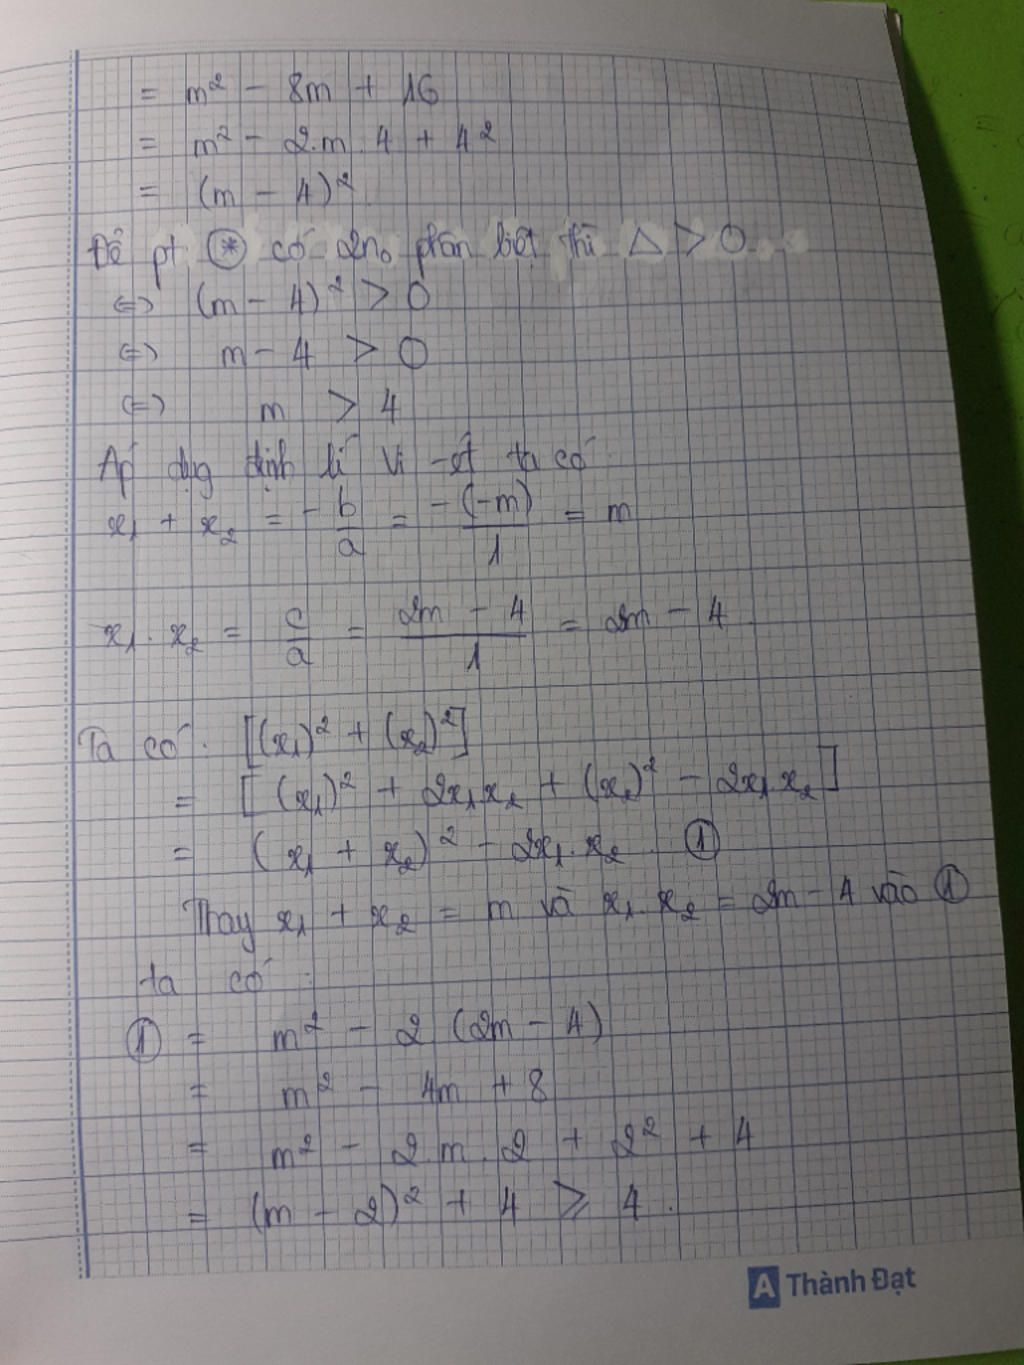 = m² - 8m + 16
= m² - 2.m.4 + 4²
= (m - 4)²
Để pt (*) có 2n₀ phân biệt thì Δ > 0
⇔ (m - 4)² > 0
⇔ m - 4 > 0
⇔ m > 4
Áp dụng định lí Vi-ét ta có
x₁ + x₂ = -b/a = -(-m)/1 = m
x₁ . x₂ = c/a = (2m - 4)/1 = 2m - 4
Ta có. [(x₁)² + (x₂)²]
= [(x₁)² + 2x₁x₂ + (x₂)² - 2x₁.x₂]
= (x₁ + x₂)² - 2x₁.x₂ ①
Thay x₁ + x₂ = m và x₁.x₂ = 2m - 4 vào ①
ta có :
① = m² - 2 (2m - 4)
= m² - 4m + 8
= m² - 2.m.2 + 2² + 4
= (m - 2)² + 4 ≥ 4.
A Thành Đạt